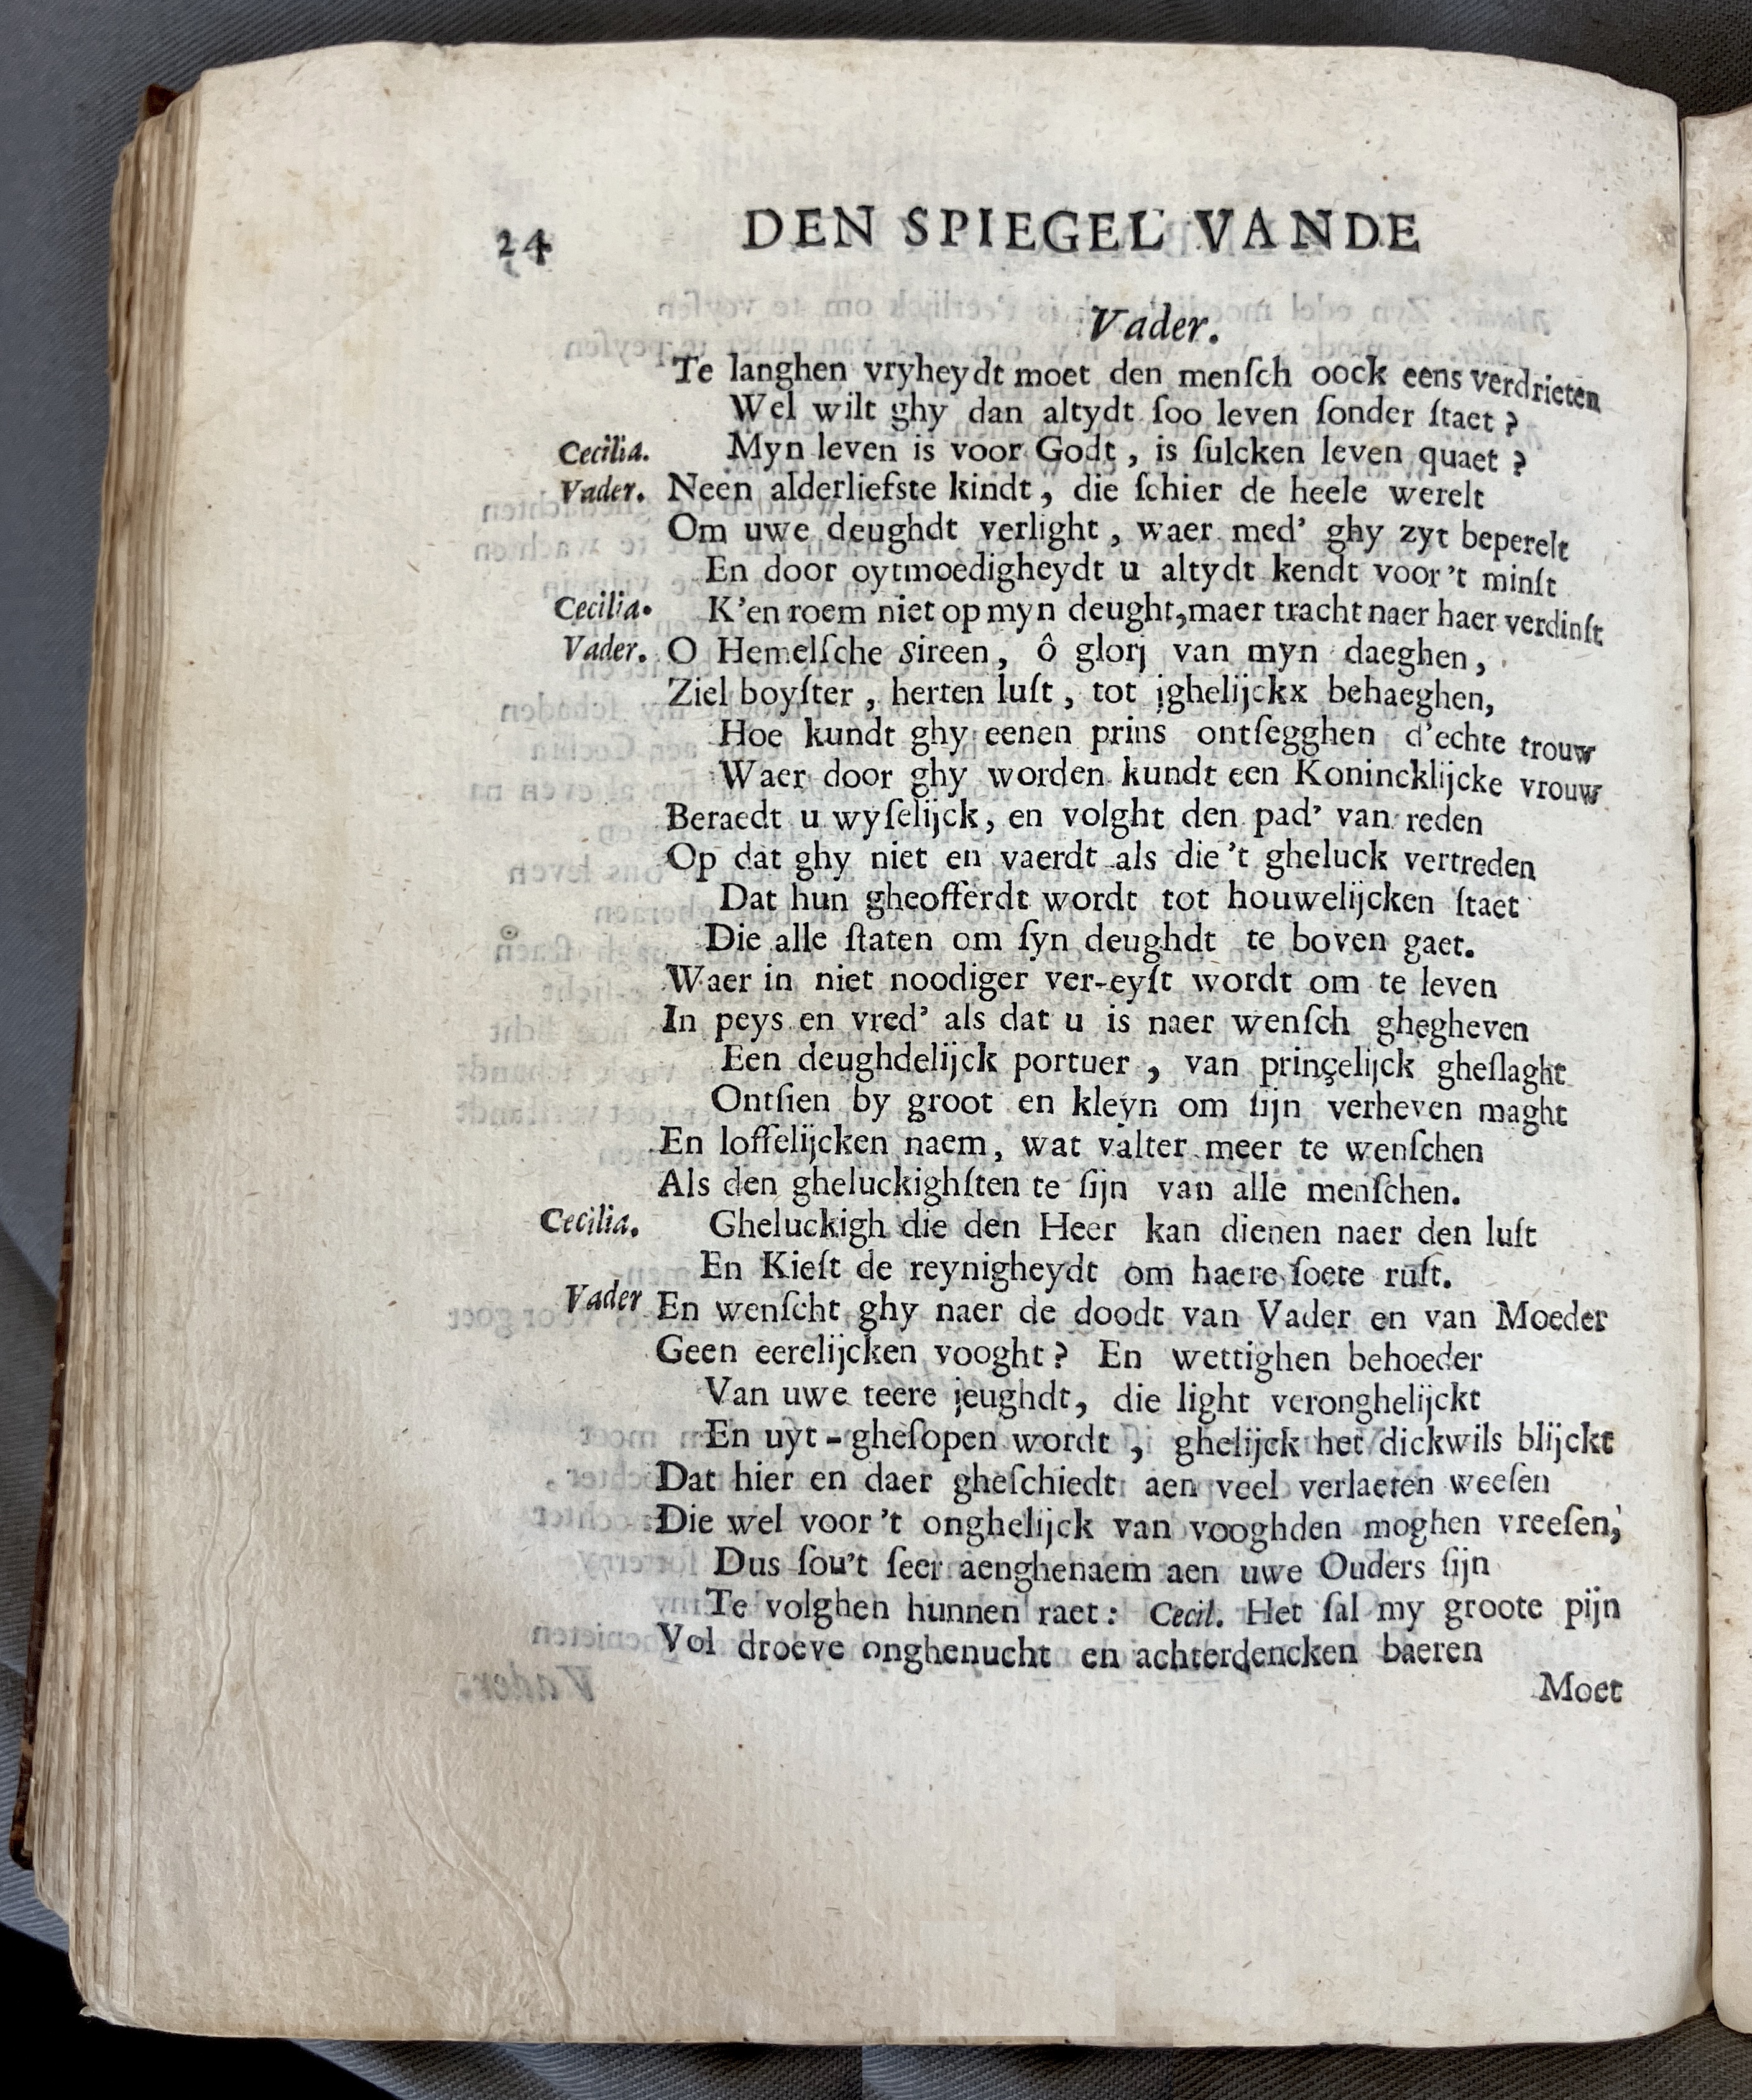 24 DEN SPIEGEL VANDE
Vader.
Te langhen vryheydt moet den menſch oock eens verdrieten
Wel wilt ghy dan altydt ſoo leven ſonder ſtaet ?
Cecilia. Myn leven is voor Godt , is ſulcken leven quaet ?
Vader. Neen alderliefste kindt , die ſchier de heele werelt
Om uwe deughdt verlight , waer med’ ghy zyt beperelt
En door oytmoedigheydt u altydt kendt voor ’t minſt
Cecilia. K’en roem niet op myn deught,maer tracht naer haer verdinſt
Vader. O Hemelſche Sireen, ô glorj van myn daeghen ,
Ziel boyſter , herten luſt , tot jghelijckx behaeghen,
Hoe kundt ghy eenen prins ontſegghen d’echte trouw
Waer door ghy worden kundt een Konincklijcke vrouw
Beraedt u wyſelijck, en volght den pad’ van reden
Op dat ghy niet en vaerdt als die ’t gheluck vertreden
Dat hun gheofferdt wordt tot houwelijcken ſtaet
Die alle ſtaten om ſyn deughdt te boven gaet.
Waer in niet noodiger ver-eyſt wordt om te leven
In peys en vred’ als dat u is naer wenſch ghegheven
Een deughdelijck portuer , van prinçelijck gheſlaght
Ontſien by groot en kleyn om ſijn verheven maght
En loffelijcken naem, wat valter meer te wenſchen
Als den gheluckighſten te ſijn van alle menſchen.
Cecilia. Gheluckigh die den Heer kan dienen naer den luſt
En Kieſt de reynigheydt om haere ſoete ruſt.
Vader En wenſcht ghy naer de doodt van Vader en van Moeder
Geen eerelijcken vooght ? En wettighen behoeder
Van uwe teere jeughdt, die light veronghelijckt
En uyt-gheſopen wordt , ghelijck het dickwils blijckt
Dat hier en daer gheſchiedt aen veel verlaeten weeſen
Die wel voor ’t onghelijck van vooghden moghen vreeſen,
Dus ſou’t ſeer aenghenaem aen uwe Ouders ſijn
Te volghen hunnen raet : Cecil. Het ſal my groote pijn
Vol droeve onghenucht en achterdencken baeren
Moet